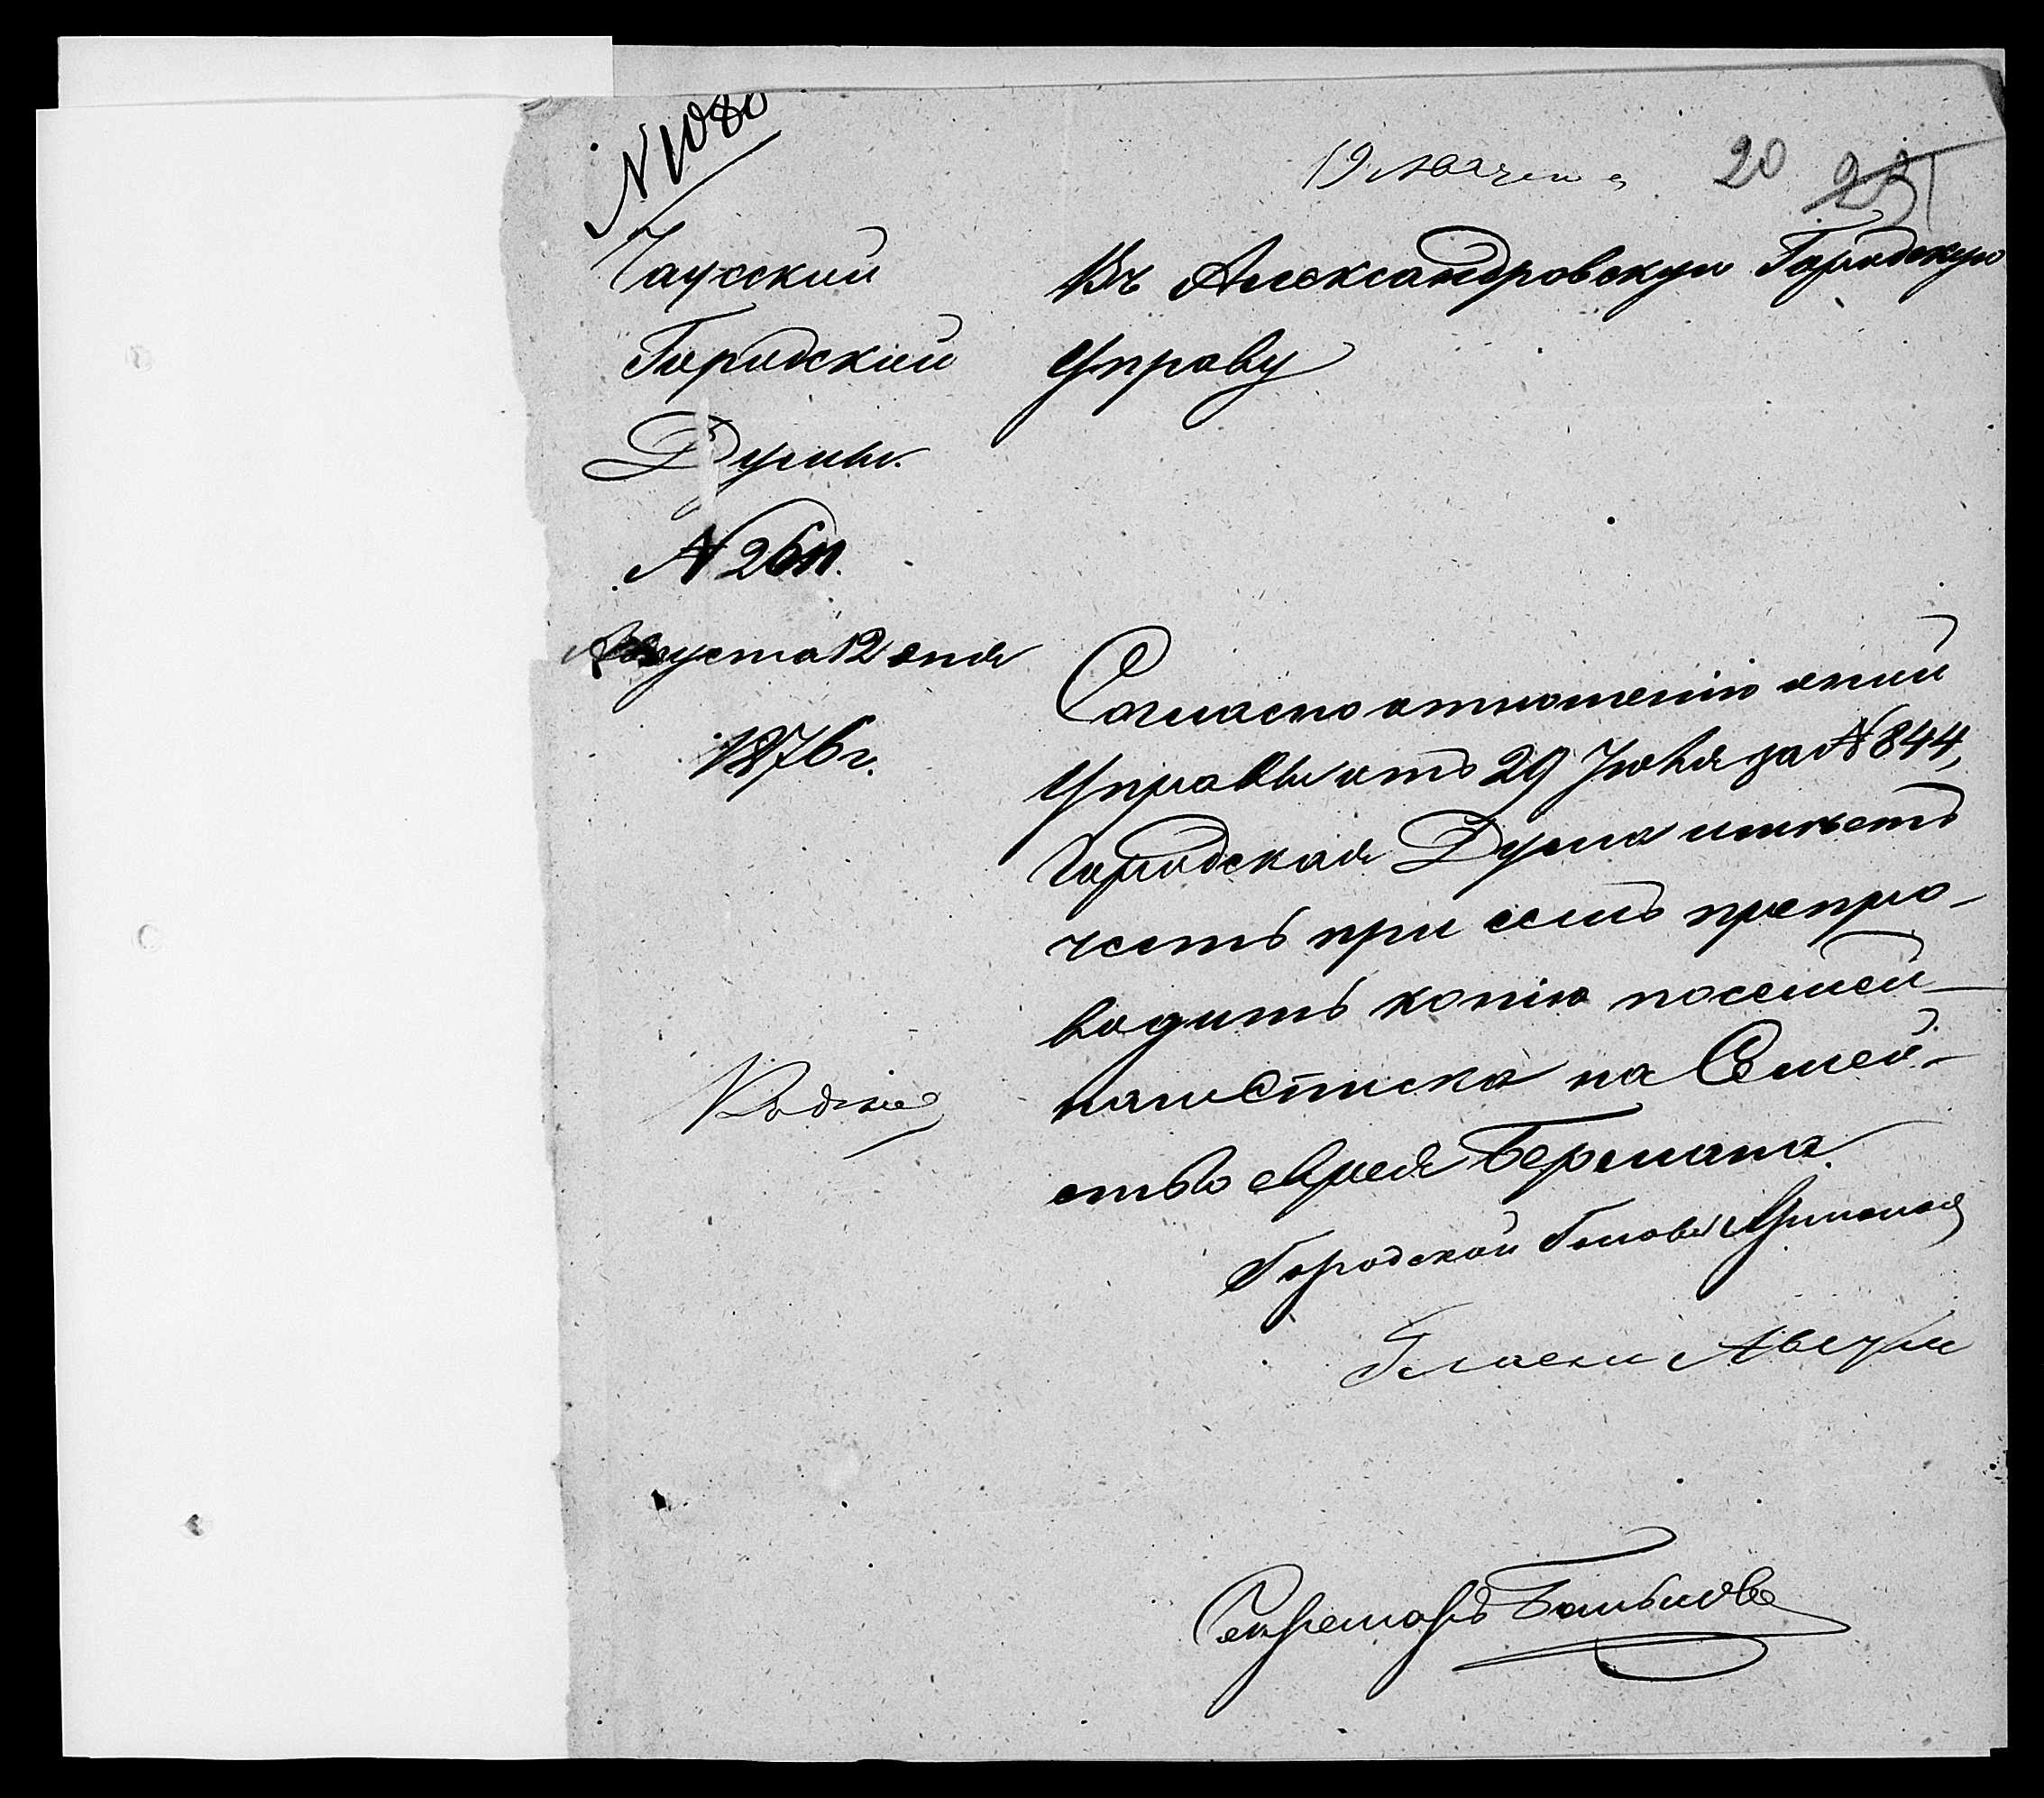 N 1080
19 Августа
20
Чаусской
Городской
Думы.
N 2611.
Августа 12 дня
1876 г.
Въ Александровскую Городскую
Управу
Согласно отношенію оной
Управы отъ 29 Іюля за N 844,
Городская Дума имѣетъ
честь при семъ препро-
водить копію посемей-
наго списка на Семей-
ство еврея Бермана.
Къ дѣлу
Городской Голова
Гласный
Секретарь